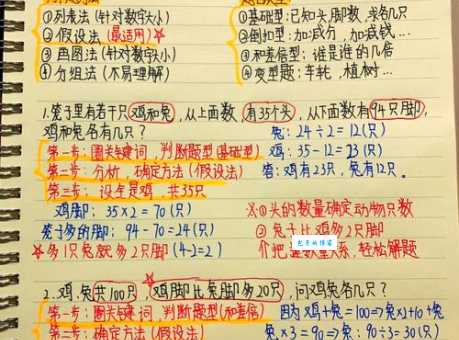 ①列表法(针对数字小)
②假设法(最适用)★
③画图法(针对数字小)
④分组法(不易理解)
①基础型:已知头脚数,求各几只
②倒扣型:加:成分,加减钱...
③和差倍型:谁是谁的几倍
④变型题:车轮,植树...
1.笼子里有若干只鸡和兔,从上面数,有35个头,从下面数有94只脚,
鸡和兔各有几只?
兔:24÷2=12(只)
第一步:圈关键词,判断题型(基础型)
鸡:35-12=23(只)
第二步:分析,确定方法(假设法)
答:鸡有23只,兔有12只.
第三步:设全是鸡,共35只
鸡脚:35×2=70(只)
※①头的数量确定动物只数
笼子多的脚:94-70=24(只)
②兔子比鸡多2只脚
★多1只兔就多2只脚(4-2=2)
轻松解题
2.鸡、兔共100只,鸡脚比兔脚多20只,问鸡兔各几只?
第一步:圈关键词,判断题型(和差倍)
因为鸡+兔=100
第二步:确定方法(假设法)
兔×3=90 兔:90÷3=30(只)